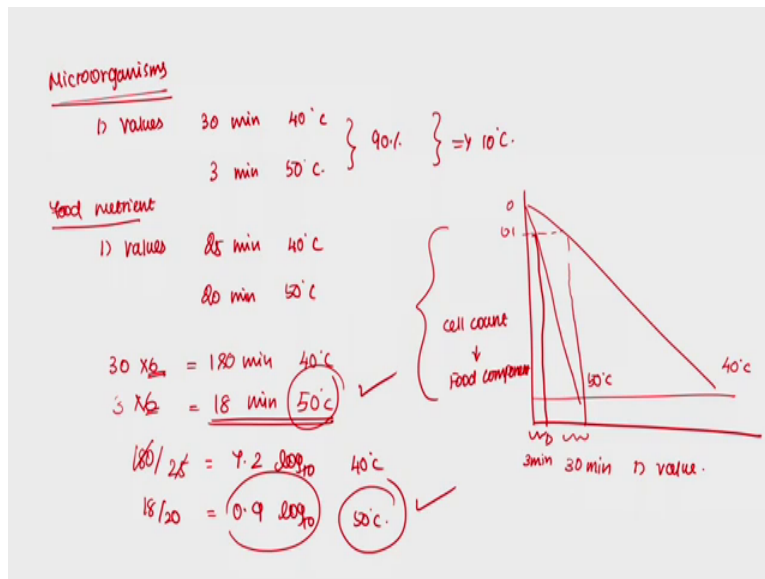 Microorganisms
D values 30 min 40°C
3 min 50°C. } 90% } => 10°C.
Food nutrient
D values 25 min 40°C
20 min 50°C
30 x6 = 180 min 40°C
3 x6 = 18 min 50°C
180/25 = 7.2 log10 40°C
18/20 = 0.9 log10 50°C.
Cell count
↓
Food component
0
50°C
40°C
3min 30min D value.